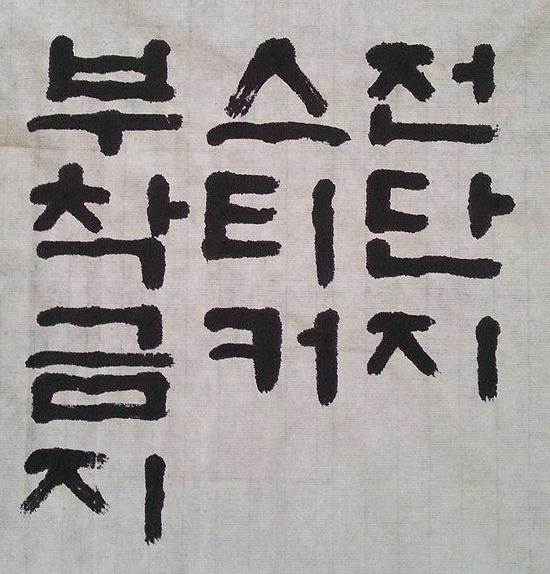 전단지
스티커
부착금지